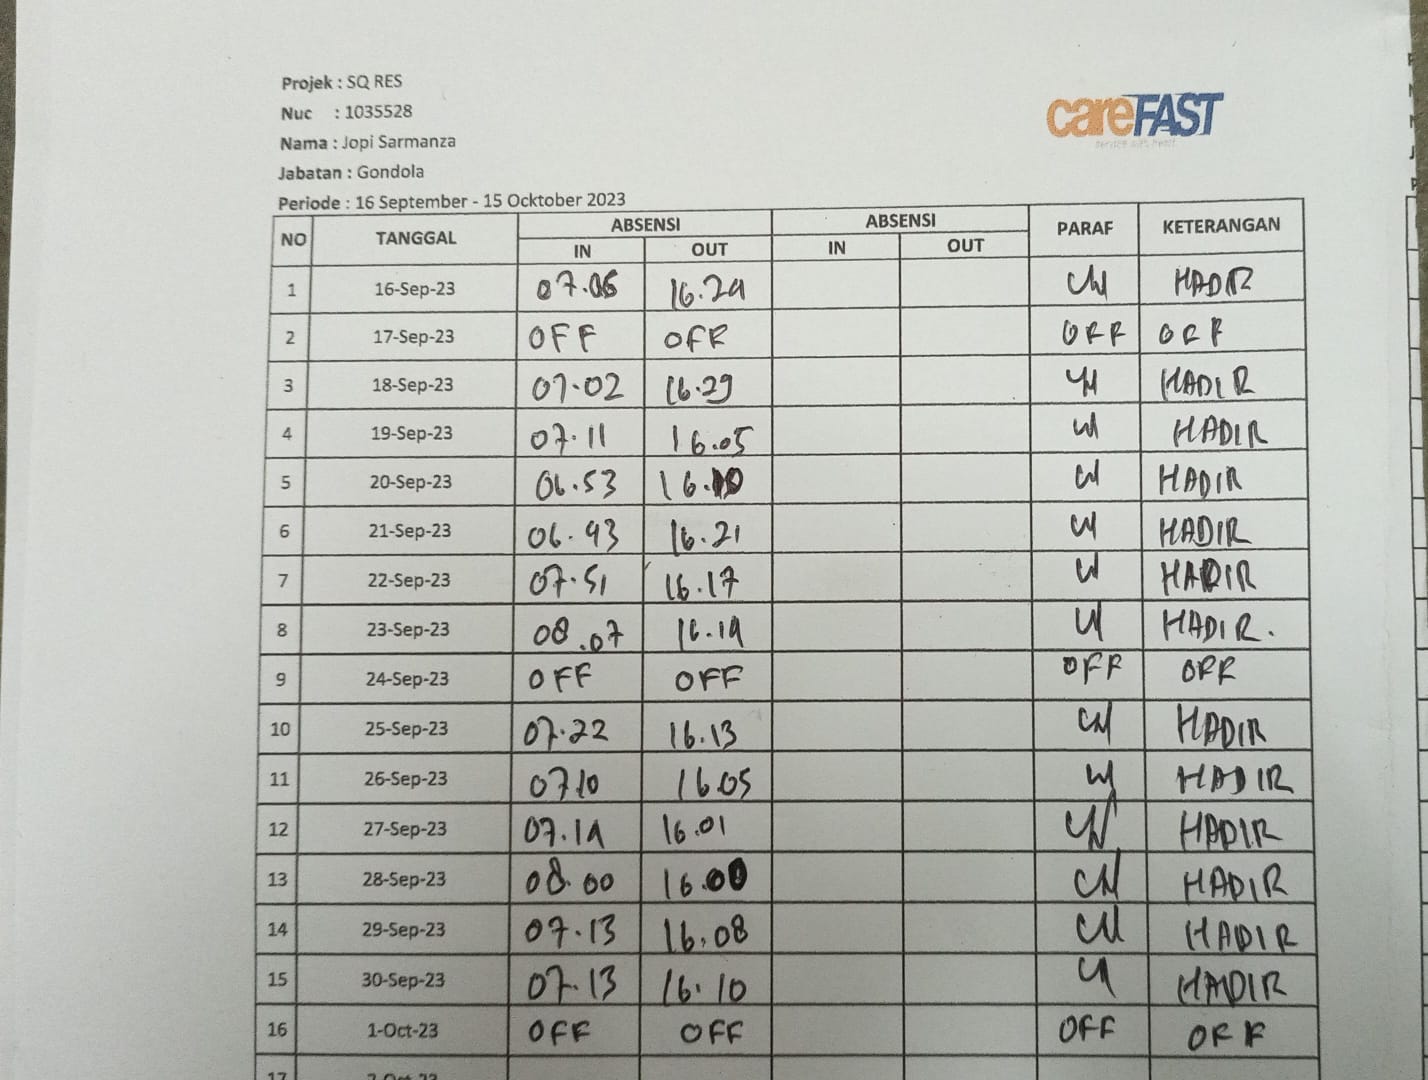 Projek : SQ RES
Nuc : 1035528
Nama : Jopi Sarmanza
Jabatan : Gondola
Periode : 16 September - 15 Ocktober 2023
careFAST
service with heart
NO TANGGAL ABSENSI ABSENSI PARAF KETERANGAN
IN OUT IN OUT
1 16-Sep-23 07.06 16.29 HADIR
2 17-Sep-23 OFF OFF OFF OFF
3 18-Sep-23 07.02 16.29 HADIR
4 19-Sep-23 07.11 16.05 HADIR
5 20-Sep-23 06.53 16.10 HADIR
6 21-Sep-23 06.43 16.21 HADIR
7 22-Sep-23 07.51 16.17 HADIR
8 23-Sep-23 08.07 16.19 HADIR.
9 24-Sep-23 OFF OFF OFF OFF
10 25-Sep-23 07.22 16.13 HADIR
11 26-Sep-23 0710 16.05 HADIR
12 27-Sep-23 07.19 16.01 HADIR
13 28-Sep-23 08.00 16.00 HADIR
14 29-Sep-23 07.13 16.08 HADIR
15 30-Sep-23 07.13 16.10 HADIR
16 1-Oct-23 OFF OFF OFF OFF
17